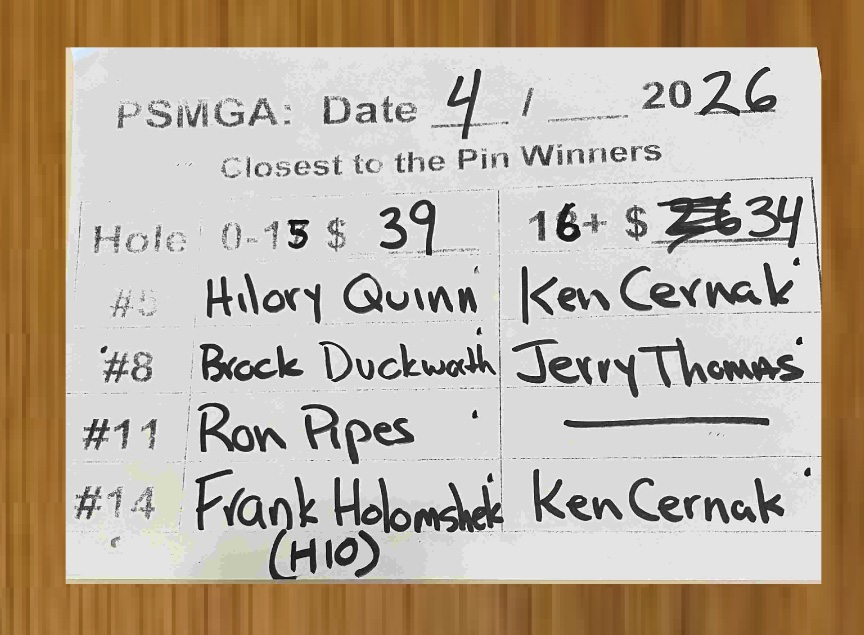 PSMGA: Date 4 / ____ 2026
Closest to the Pin Winners
Hole 0-15 $ 39 16+ $ 34
#5 Hilory Quinn Ken Cernak
#8 Brock Duckworth Jerry Thomas
#11 Ron Pipes
#14 Frank Holomshek Ken Cernak
(HIO)